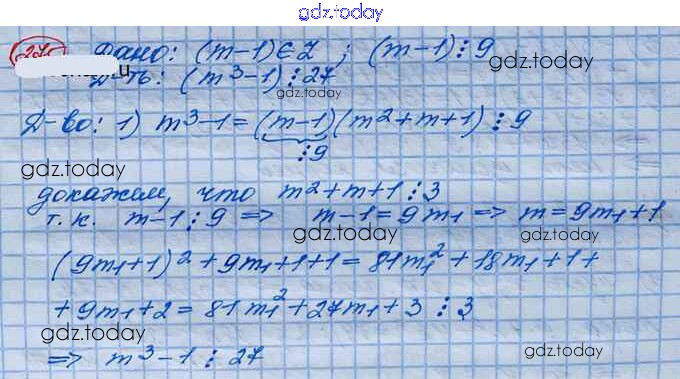 gdz.today
Дано: (m-1)∈Z ; (m-1)⋮9
gdz.today
Д-ть: (m³-1)⋮27
gdz.today
Д-во: 1) m³-1=(m-1)(m²+m+1)⋮9
⋮9
gdz.today
gdz.today
докажем, что m²+m+1⋮3
т.к. m-1⋮9 => m-1=9m₁ => m=9m₁+1
gdz.today
gdz.today
(9m₁+1)²+9m₁+1+1=81m₁²+18m₁+1+
+9m₁+2=81m₁²+27m₁+3⋮3
gdz.today
=> m³-1⋮27
gdz.today